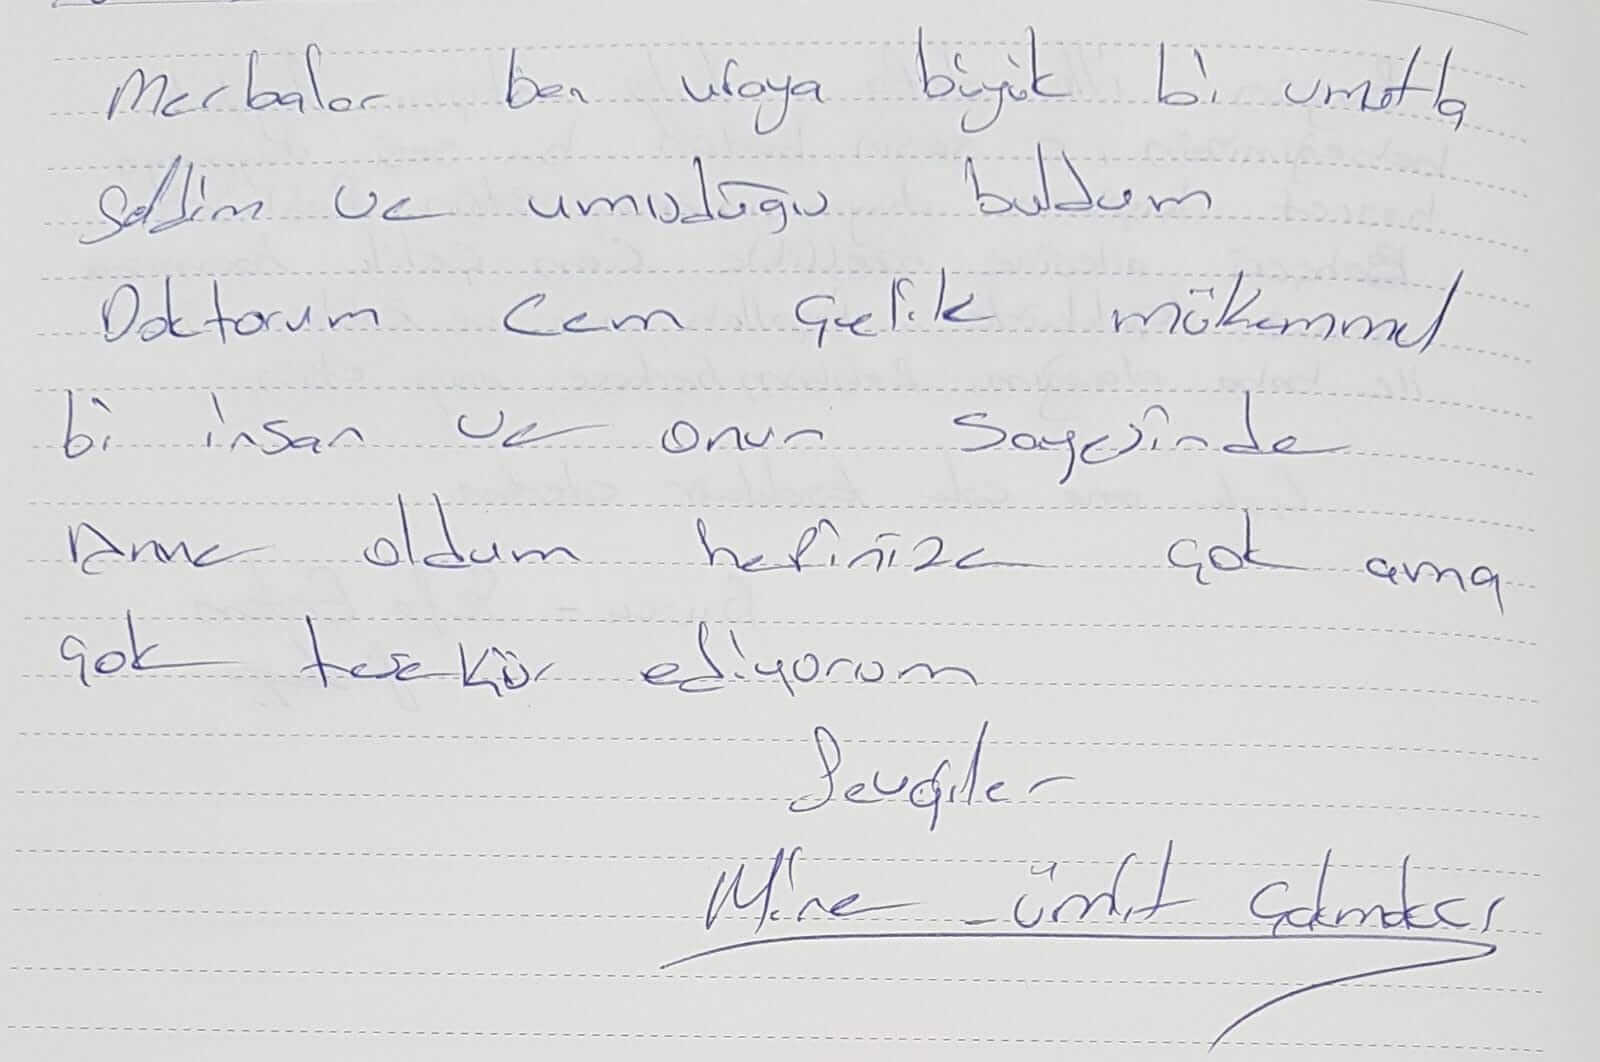 Merhabalar ben uraya büyük bi umutla
geldim ve umuduğu buldum
Doktorum Cem Çelik mükemmel
bi insan ve onun sayesinde
Anne oldum hepinize çok ama
çok teşekkür ediyorum
Sevgiler
Mine - Ümit